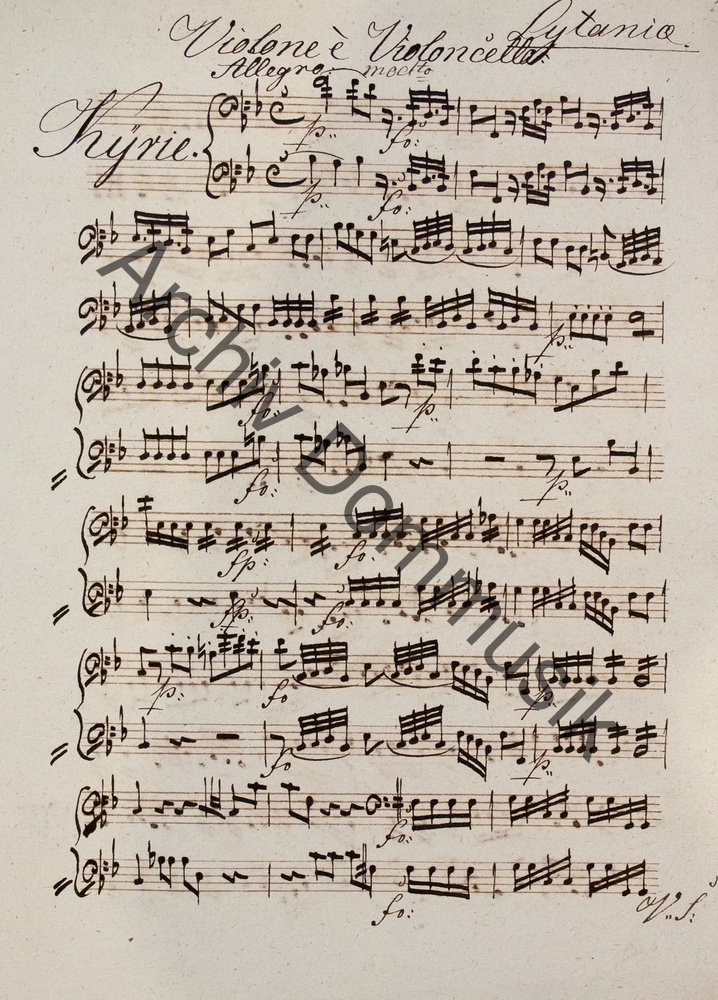 Lytaniæ.
Violone è Violoncello
Allegro modto
Kÿrie.
p: fo:
p: fo:
p:
fo: p:
fo: p:
fp: fo:
fp: fo:
p: fo p:
fo p:
fo:
fo:
V: S:
Archiv Dommusik